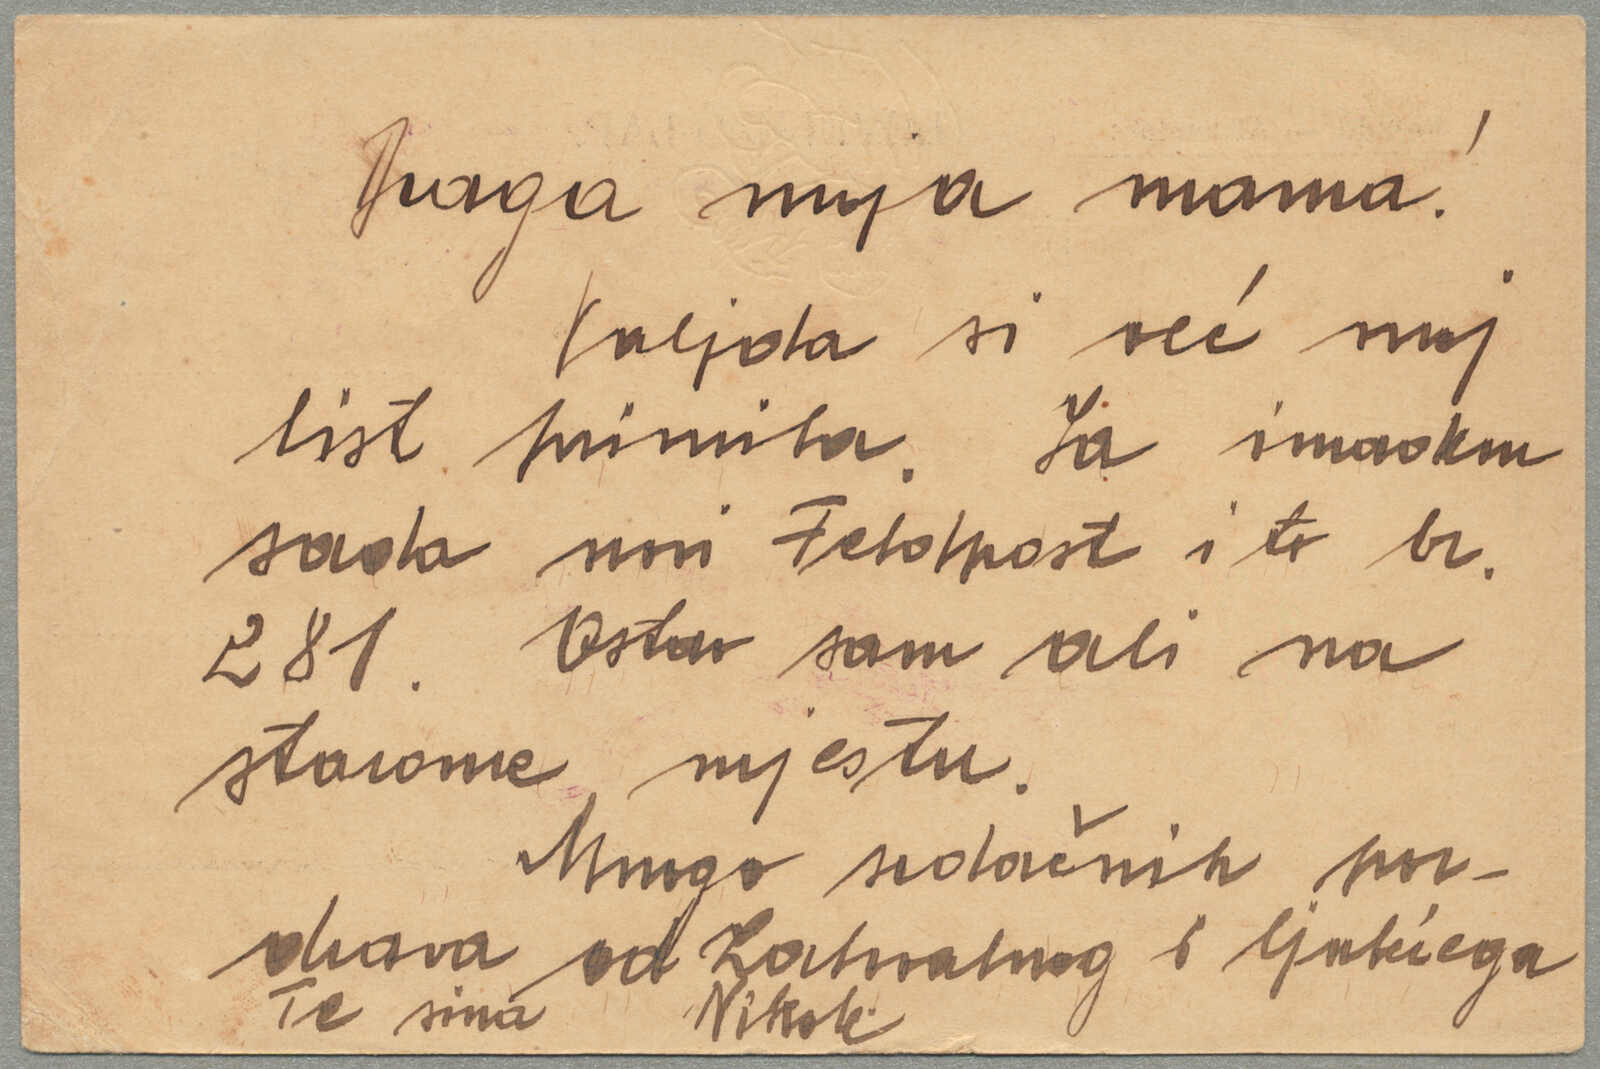 Draga moja mama!
Valjda si već moj
list primila. Ja imadem
sada novi Feldpost i to br.
281. Ostao sam ali na
starome mjestu.
Mnogo srdačnih poz-
drava od Zahvalnog i ljubićega
Te sina Nikole